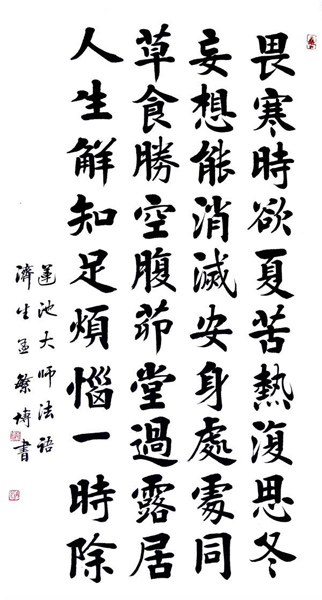 畏寒時欲夏苦熱復思冬
妄想能消滅安身處處同
草食勝空腹茆堂過露居
人生解知足煩惱一時除
蓮池大師法語
濟生孟繁博書